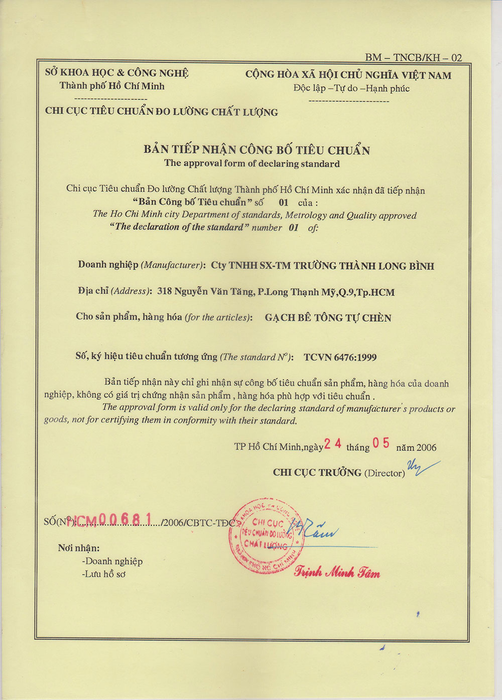 BM – TNCB/KH – 02
SỞ KHOA HỌC & CÔNG NGHỆ
Thành phố Hồ Chí Minh
CỘNG HÒA XÃ HỘI CHỦ NGHĨA VIỆT NAM
Độc lập –Tự do –Hạnh phúc
CHI CỤC TIÊU CHUẨN ĐO LƯỜNG CHẤT LƯỢNG
BẢN TIẾP NHẬN CÔNG BỐ TIÊU CHUẨN
The approval form of declaring standard
Chi cục Tiêu chuẩn Đo lường Chất lượng Thành phố Hồ Chí Minh xác nhận đã tiếp nhận
“Bản Công bố Tiêu chuẩn” số 01 của :
The Ho Chi Minh city Department of standards, Metrology and Quality approved
“The declaration of the standard” number 01 of:
Doanh nghiệp (Manufacturer): Cty TNHH SX-TM TRƯỜNG THÀNH LONG BÌNH
Địa chỉ (Address): 318 Nguyễn Văn Tăng, P.Long Thạnh Mỹ,Q.9,Tp.HCM
Cho sản phẩm, hàng hóa (for the articles): GẠCH BÊ TÔNG TỰ CHÈN
Số, ký hiệu tiêu chuẩn tương ứng (The standard N°): TCVN 6476:1999
Bản tiếp nhận này chỉ ghi nhận sự công bố tiêu chuẩn sản phẩm, hàng hóa của doanh
nghiệp, không có giá trị chứng nhận sản phẩm , hàng hóa phù hợp với tiêu chuẩn .
The approval form is valid only for the declaring standard of manufacturer's products or
goods, not for certifying them in conformity with their standard.
TP Hồ Chí Minh,ngày 24 tháng 05 năm 2006
CHI CỤC TRƯỞNG (Director)
SỐ(N°) HCM00681 /2006/CBTC-TĐC
CHI CỤC
TIÊU CHUẨN ĐO LƯỜNG
CHẤT LƯỢNG
Nơi nhận:
-Doanh nghiệp
-Lưu hồ sơ
Trịnh Minh Tâm